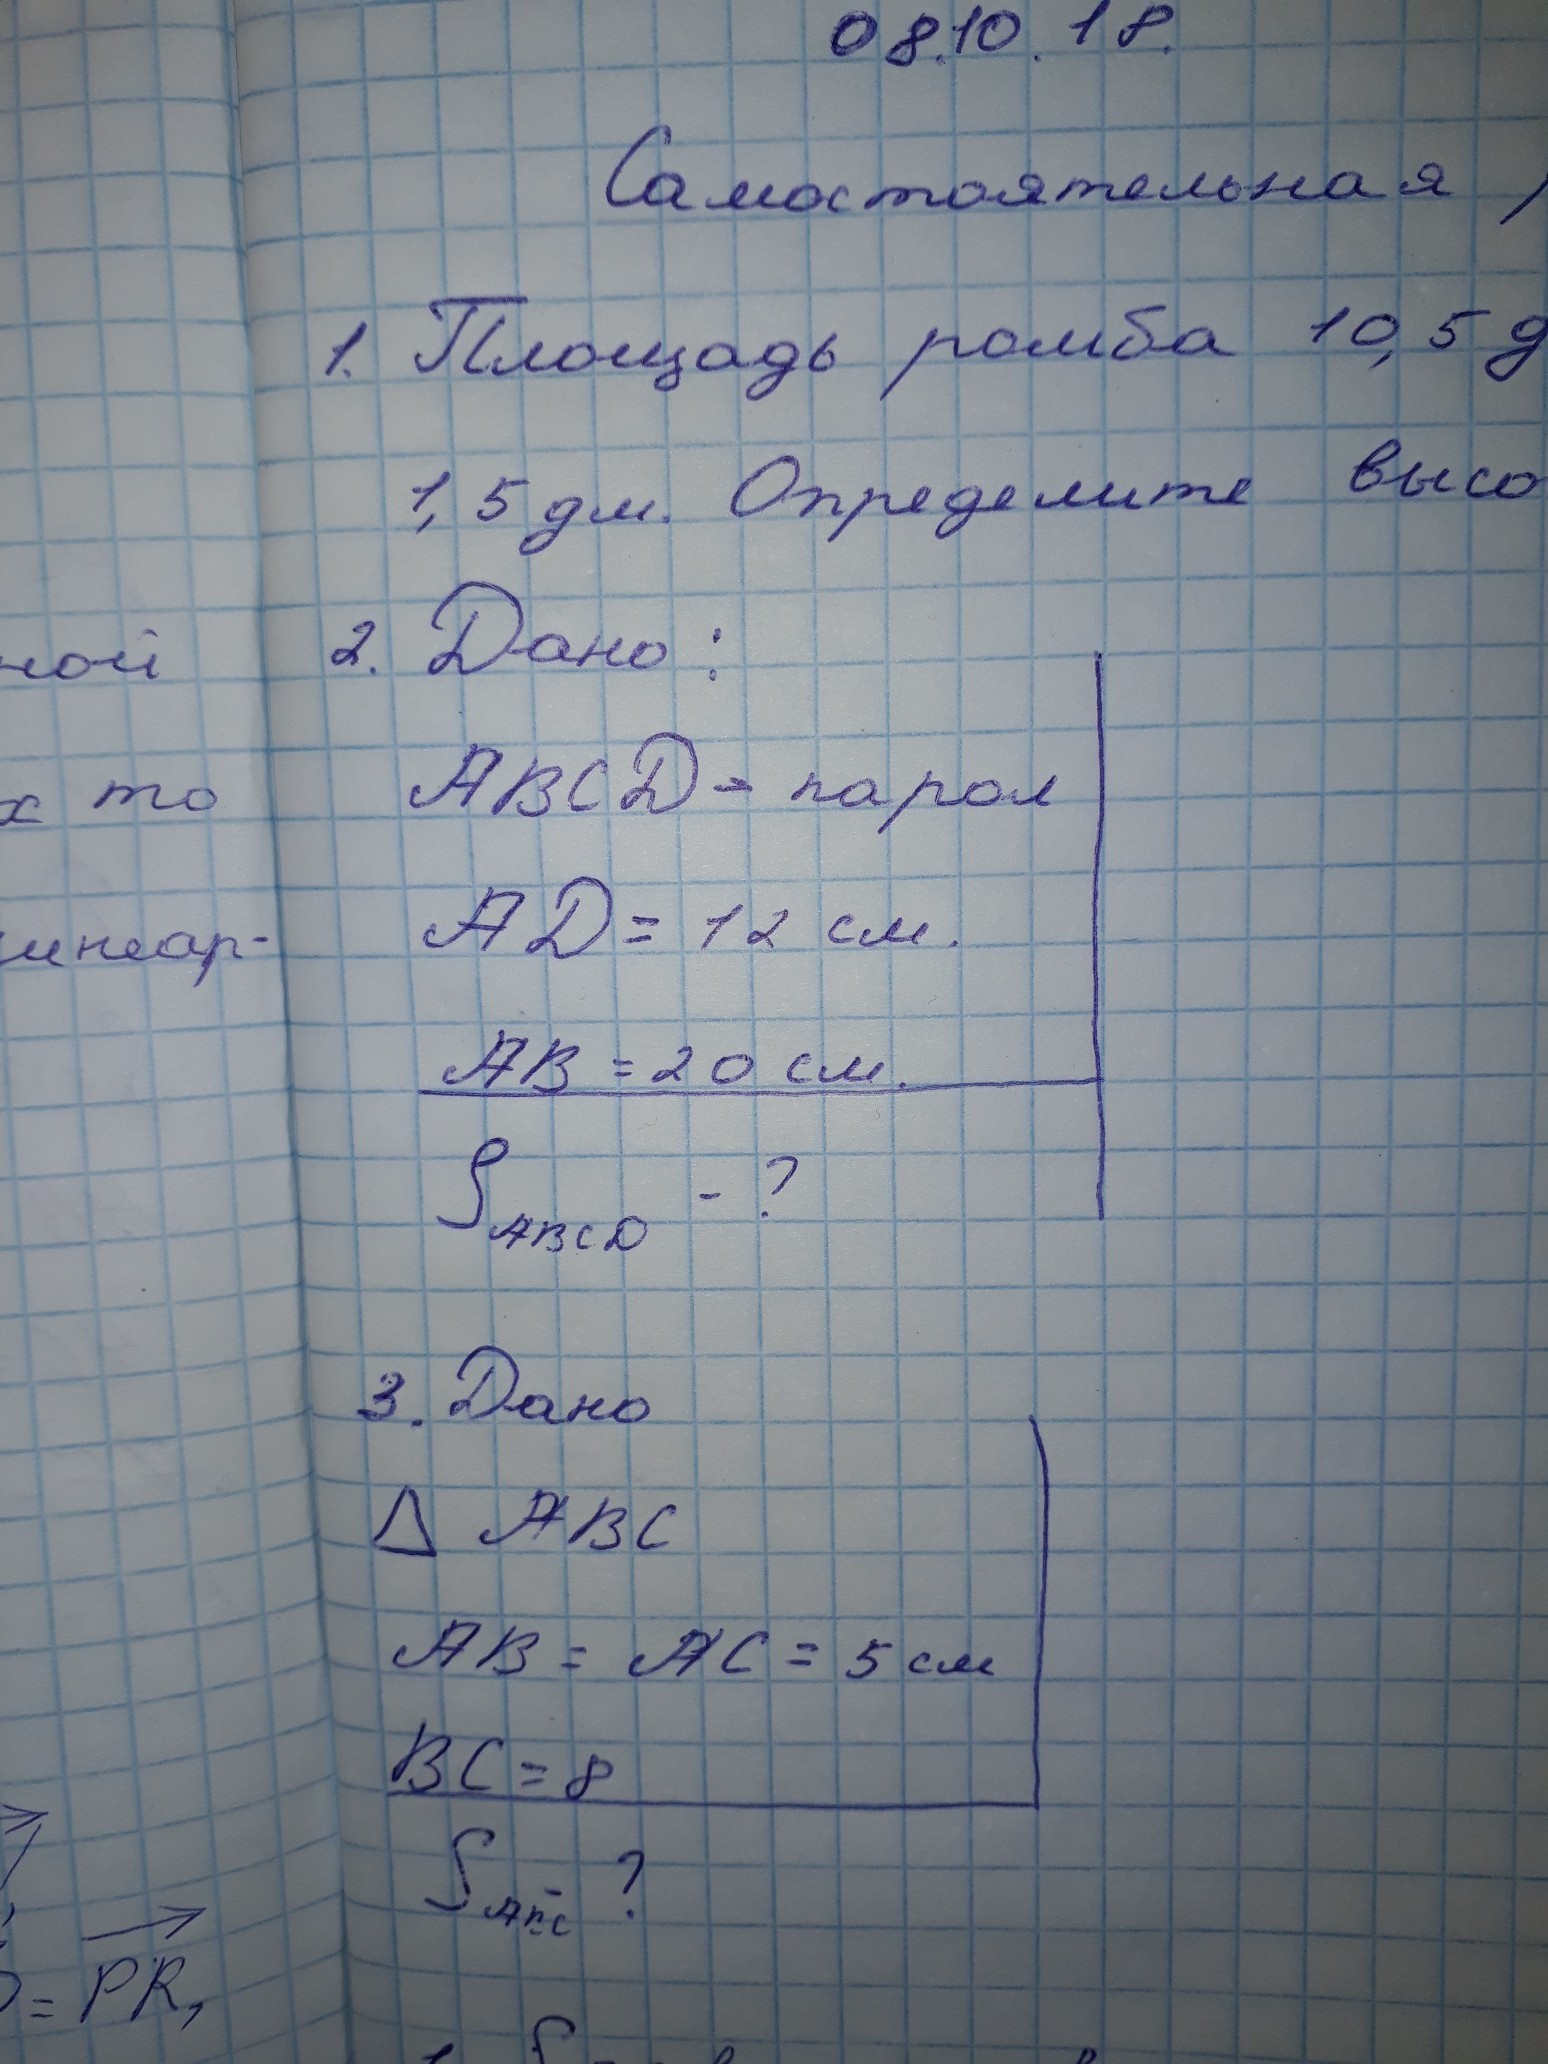 08.10.18.
Самостоятельная
1. Площадь ромба 10,5 д
1,5 дм. Определите высо
2. Дано:
ABCD - парал
AD = 12 см.
AB = 20 см.
S ABCD - ?
3. Дано
Δ ABC
AB = AC = 5 см
BC = 8
S ABC - ?
ной
х то
инеар-
= PR,